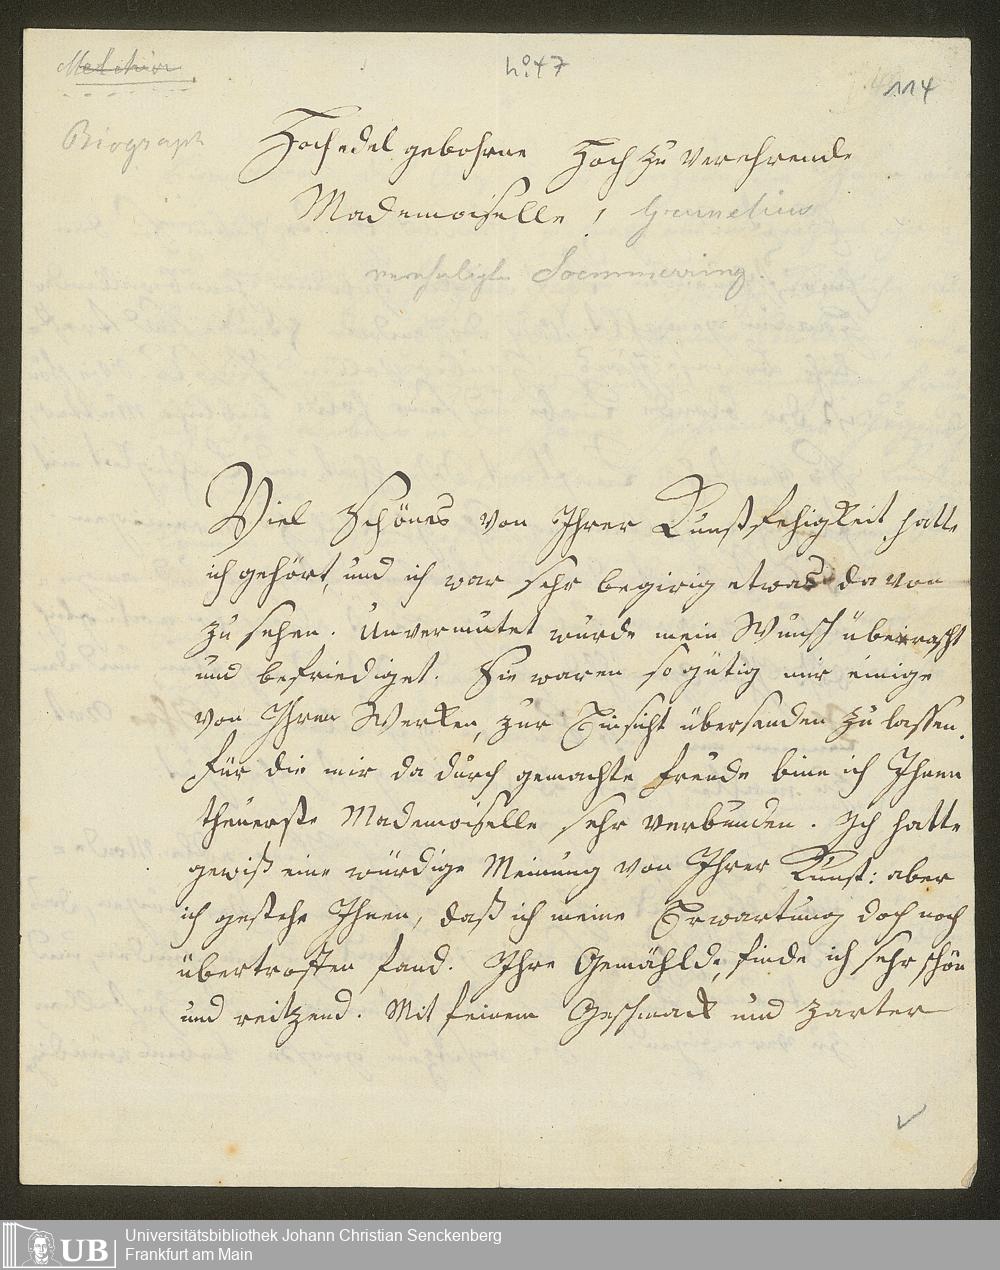 No 47
114
Biograph
Hochedel gebohrne Hoch zu verehrende
Mademoiselle! Grunelius
verehligte Soemmerring.
Viel Schönes von Ihrer Kunstfehigkeit hatte
ich gehört, und ich war sehr begirig etwas davon
zu sehen. Unvermutet wurde mein Wunsch überrascht
und befriediget. Sie waren so gütig mir einige
von Ihren Werken, zur Einsicht übersenden zu lassen.
Für die mir dadurch gemachte Freude bine ich Ihnen
theuerste Mademoiselle sehr verbunden. Ich hatte
gewiß eine würdige Meinung von Ihrer Kunst: aber
ich gestehe Ihnen, daß ich meine Erwartung doch noch
übertroffen fand. Ihre Gemählde, finde ich sehr schön
und reitzend. Mit feinem Geschmack und zarter
UB
Universitätsbibliothek Johann Christian Senckenberg
Frankfurt am Main